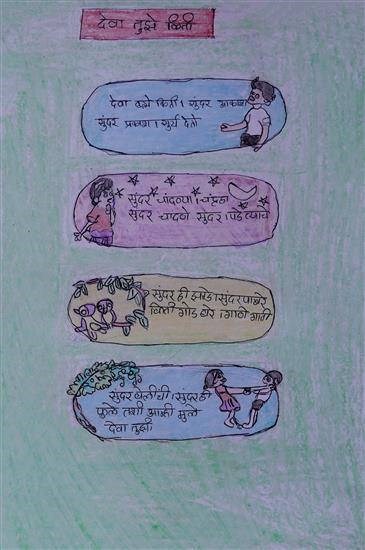 देवा तुझे किती
देवा तुझे किती । सुंदर आकाश
सुंदर प्रकाश । सूर्य देतो
सुंदर चांदण्या । चंद्र हा
सुंदर चांदणे सुंदर । पडे त्याचे
सुंदर ही झाडे । सुंदर पाखरे
किती गोड बरे । गाणे गाती
सुंदर वेलींची । सुंदर ही
फुले तशी आम्ही मुले
देवा तुझी